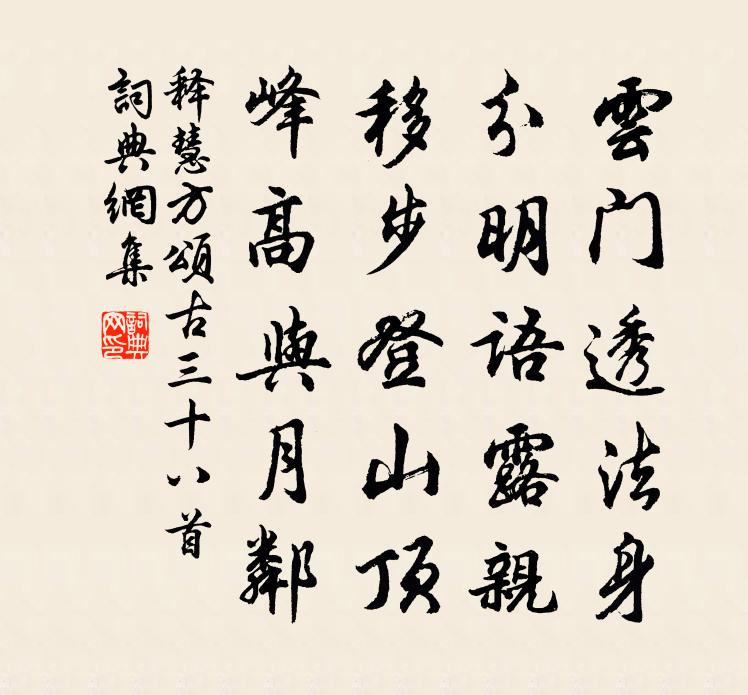 雲门透法身
分明語露親
移步登山顶
峰高與月鄰
释慧方頌古三十八首
詞典網集
詞典網印